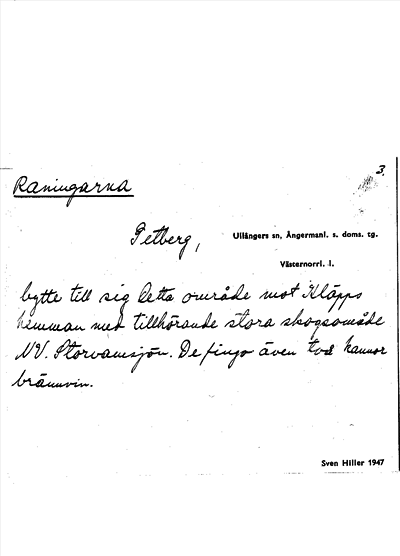 3.
Raningarna
Petberg,
Ullångers sn, Ångermanl. s. doms. tg.
Västernorrl. l.
bytte till sig detta område mot Kläpps
hemman med tillhörande stora skogsområde
NV. Storvamsjön. De fingo även två kannor
brännvin.
Sven Hiller 1947